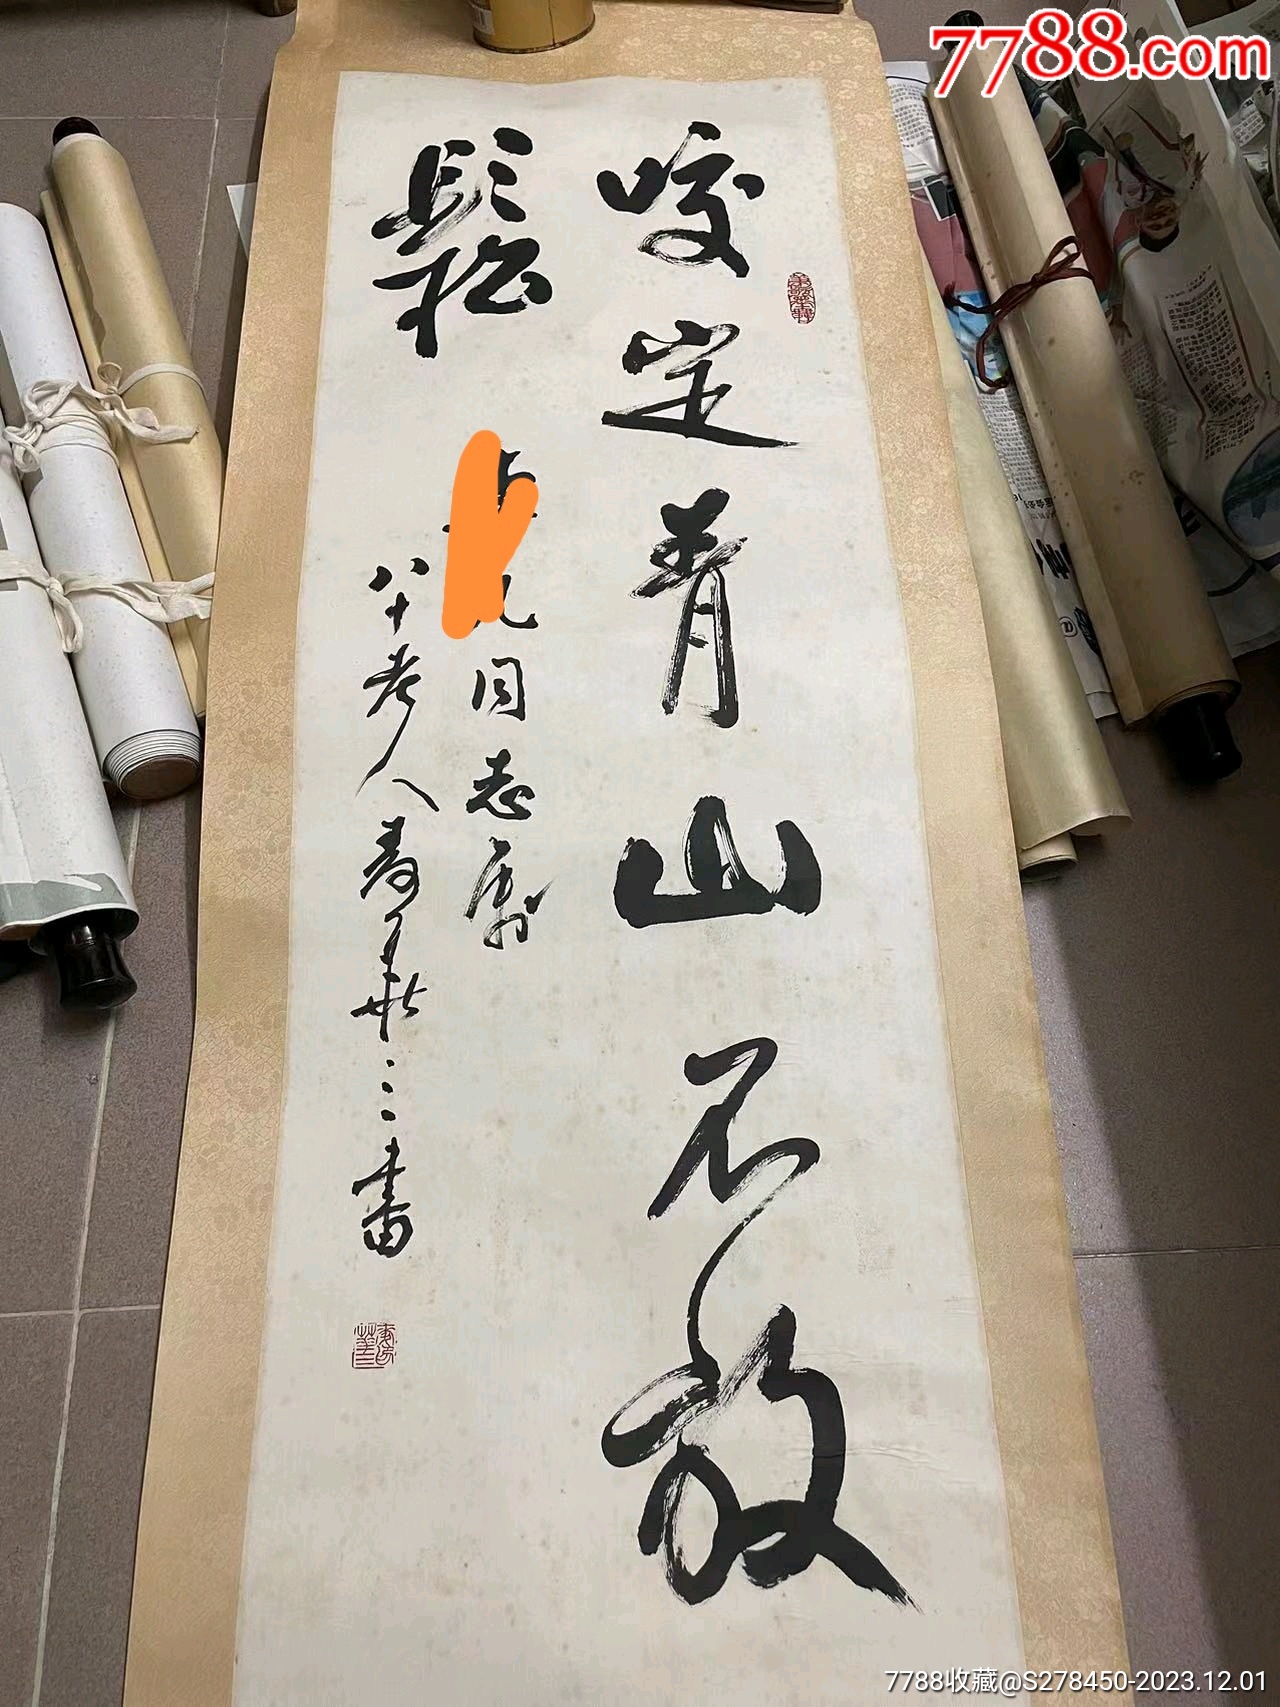 7788.com
咬定青山不放
鬆
同志属
八十老人寿華三書
7788收藏@S278450-2023.12.01